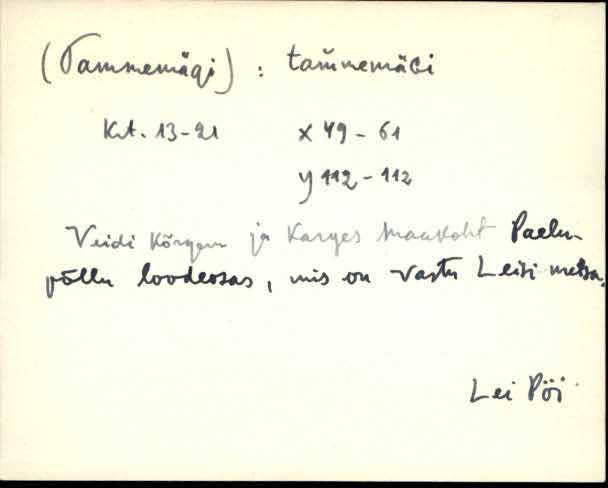 (Tammemägi) : tam̆memäGi
Krt. 13-21 x 49 - 61
y 112 - 112
Veidi kõrgem ja karges maakoht Paelu-
põllu loodeosas, mis on vastu Leisi metsa.
Lei Pöi